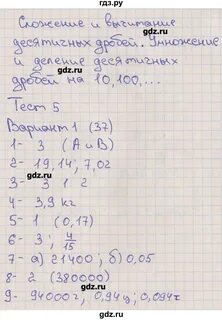 Сложение и вычитание
десятичных дробей. Умножение
и деление десятичных
дробей на 10,100,...
Тест 5
Вариант 1 (37)
1- 3 (А и В)
2- 19,14; 7,02
3- 3 1 2
4- 3,9 кг
5- 1 (0,17)
6- 3; 4/15
7- а) 21400; б) 0,05
8- 2 (380000)
9- 94000г; 0,94ц; 0,094т
gdz.ru
gdz.ru
gdz.ru
gdz.ru
gdz.ru
gdz.ru
gdz.ru
gdz.ru